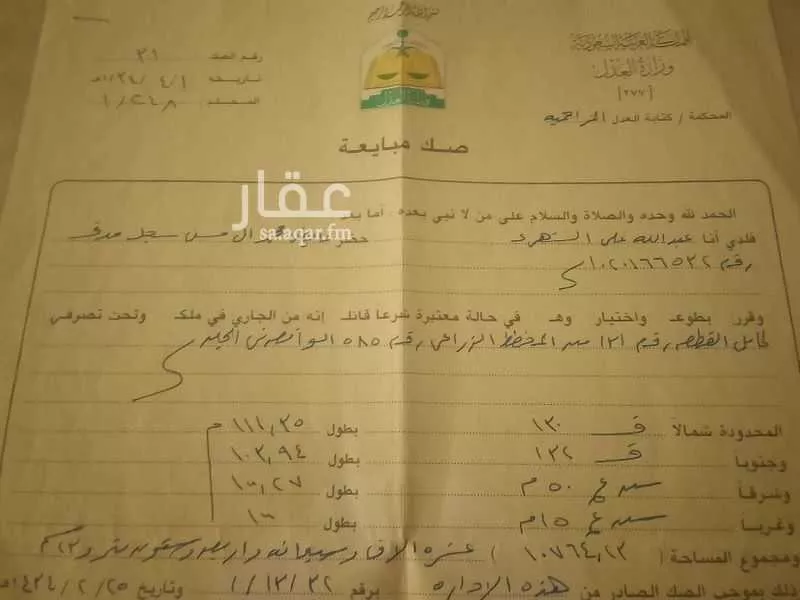 بسم الله الرحمن الرحيم
المملكة العربية السعودية
وزارة العدل
[٢٧٧]
المحكمة / كتابة العدل المزاحمية
رقم الصك ٣١
تاريخه ١/٤/١٤٣٤هـ
المجلد ١/٢٤٨
وزارة العدل
صك مبايعة
عقار
sa.aqar.fm
الحمد لله وحده والصلاة والسلام على من لا نبي بعده، أما بعد
فلدي أنا عبدالله علي الشهري حضر محمد آل سجل مدني
رقم ١٠٢٠١٦٦٥٣٢
وقرر بطوعـ واختيار وهـ في حالة معتبرة شرعا قائلـ إنه من الجاري في ملكـ وتحت تصرفي
كامل القطعة رقم ١٣١ من المخطط الزراعي رقم ٥٨٥
المحدودة شمالاً ق ١٣٠ بطول ١١١,٣٥ م
وجنوبا ق ١٣٢ بطول ١٠٣,٩٤
وشرقاً شارع ٥٠ م بطول
وغرباً شارع ١٥م بطول ١٠٠
ومجموع المساحة ( ١٠٧٦٤,١٣ ) عشرة آلاف وسبعمائة واربعة وستون متر و١٣سم
ذلك بموجب الصك الصادر من هذه الإدارة برقم ١/١٣/٣٢ وتاريخ ٢٥/٢/١٤٣٤هـ